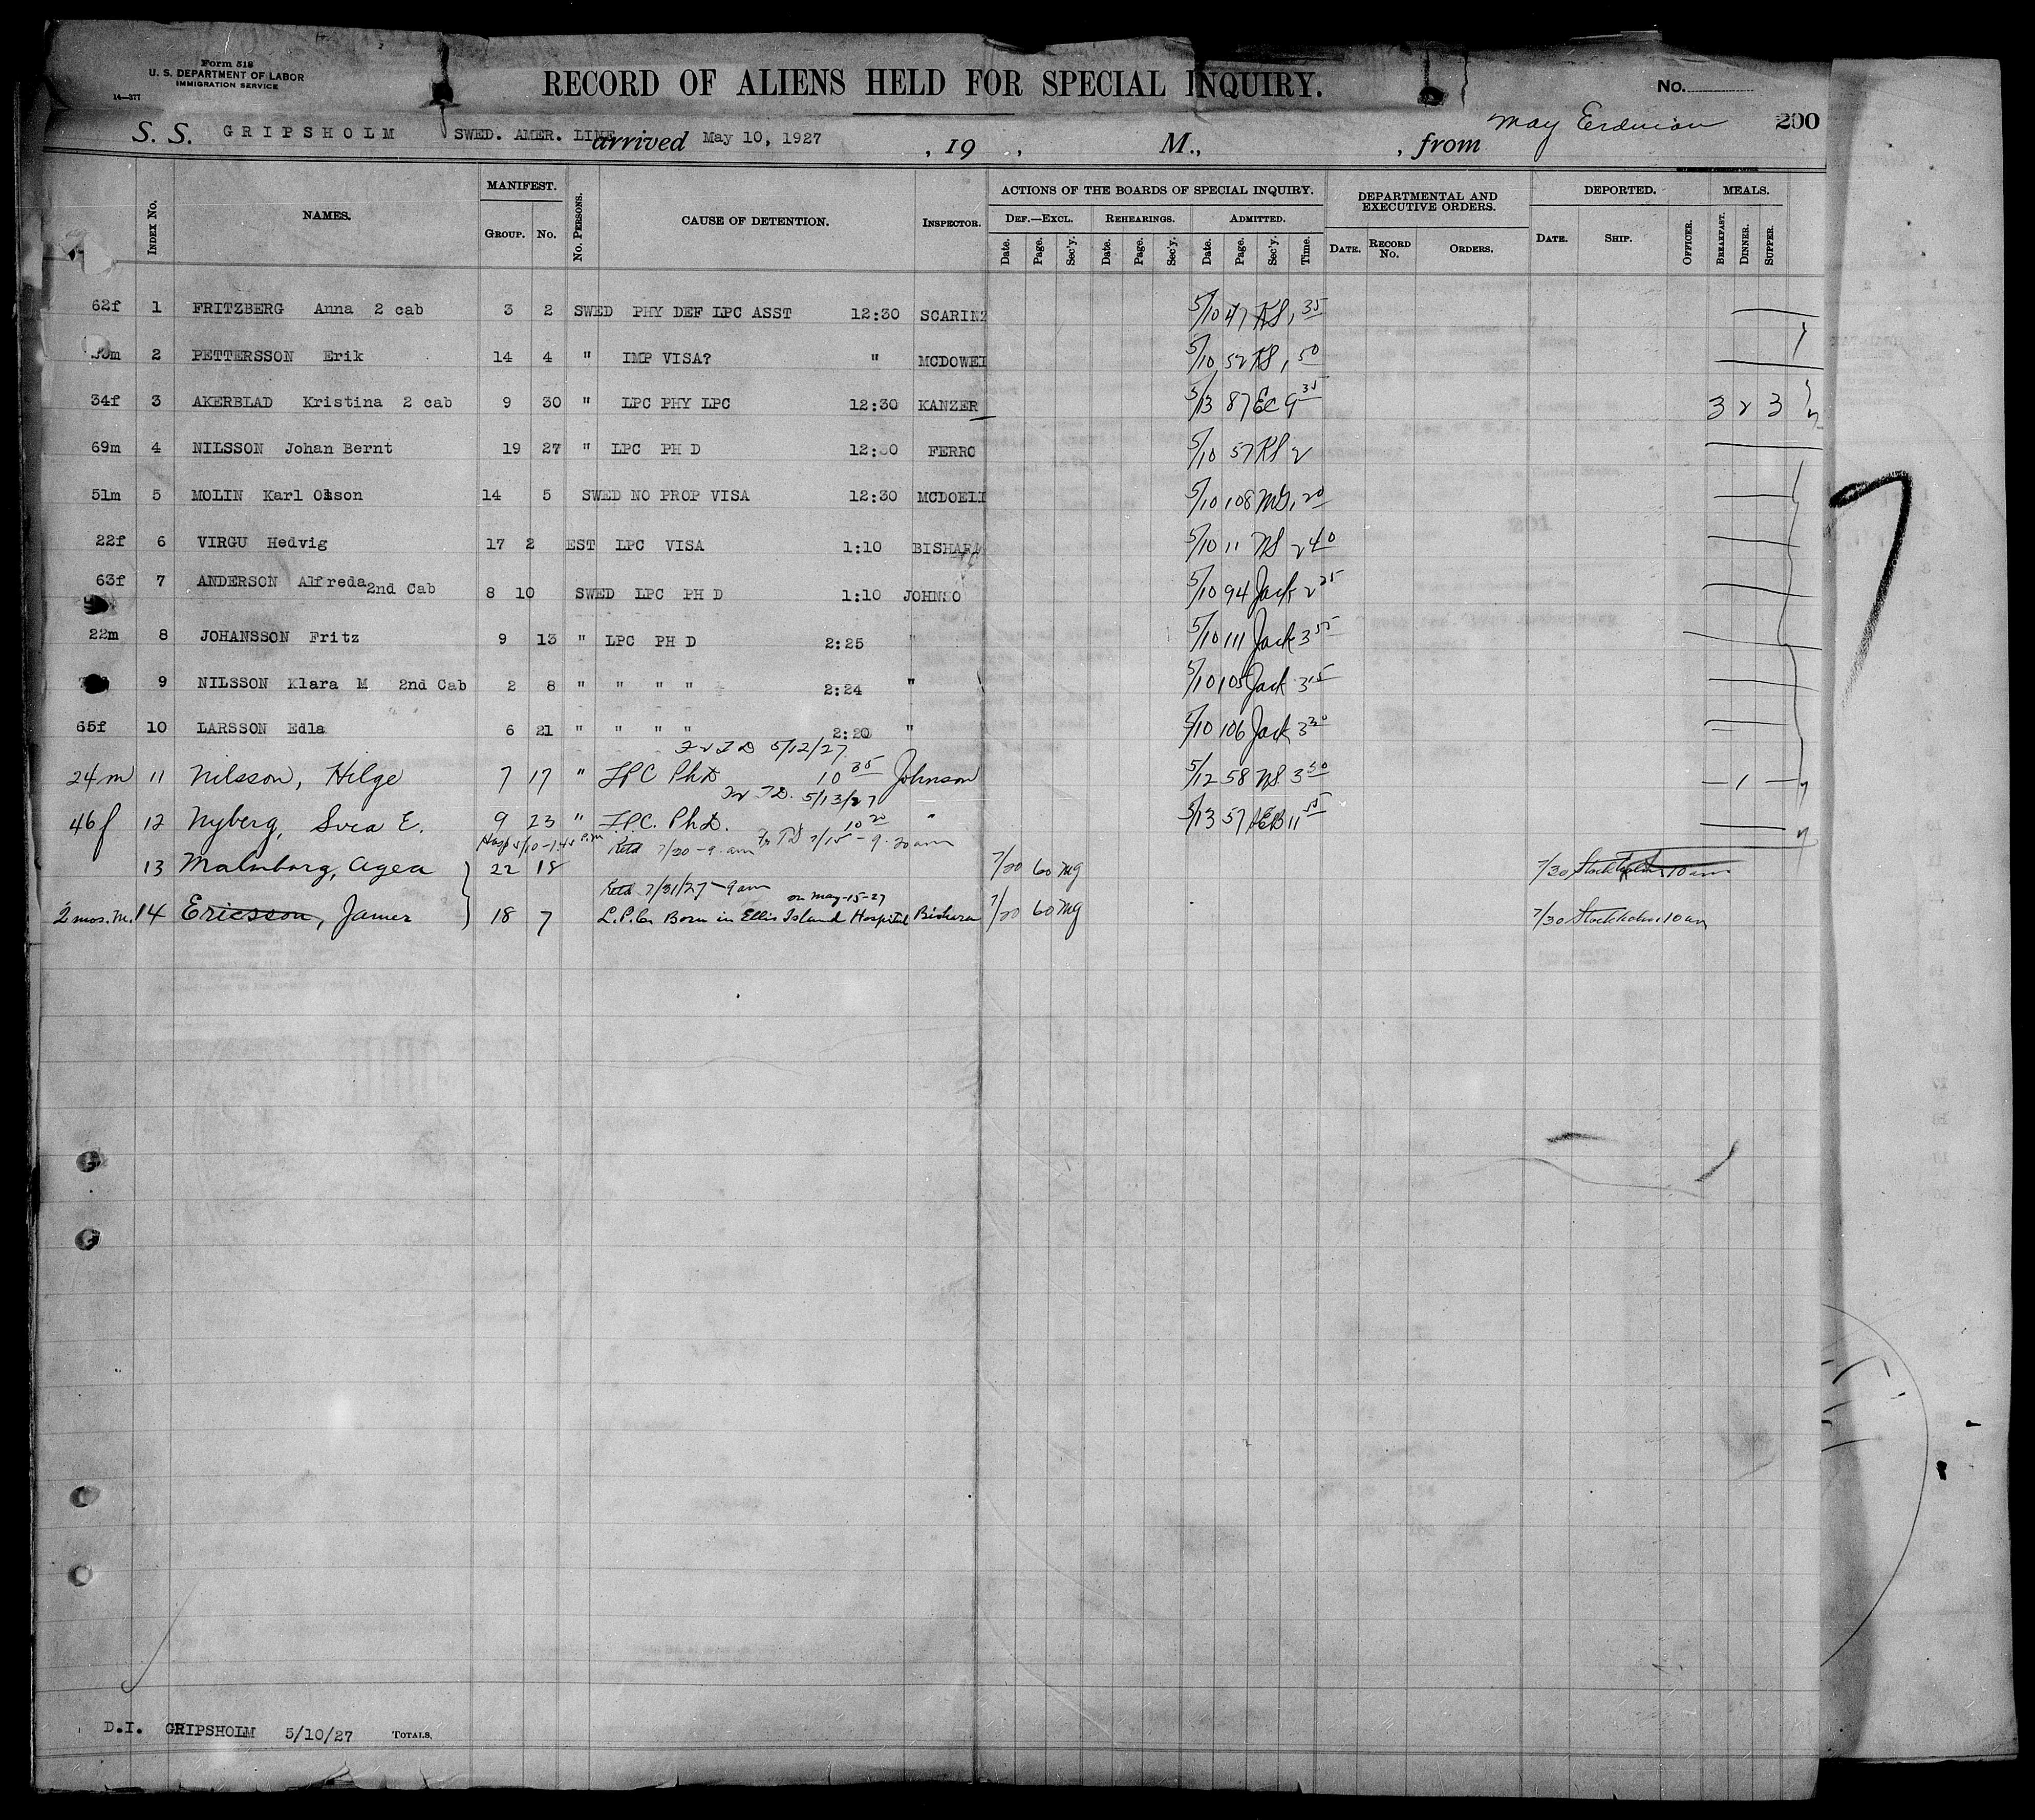 Form 518
U. S. DEPARTMENT OF LABOR
IMMIGRATION SERVICE
14—377
RECORD OF ALIENS HELD FOR SPECIAL INQUIRY.
No.
S. S. GRIPSHOLM SWED. AMER. LINE arrived May 10, 1927 , 19 , M., , from May Erdman 200
INDEX No. NAMES. MANIFEST. GROUP. No. No. PERSONS. CAUSE OF DETENTION. INSPECTOR. ACTIONS OF THE BOARDS OF SPECIAL INQUIRY. DEF.—EXCL. Date. Page. Sec'y. REHEARINGS. Date. Page. Sec'y. ADMITTED. Date. Page. Sec'y. Time. DEPARTMENTAL AND EXECUTIVE ORDERS. DATE. RECORD No. ORDERS. DEPORTED. DATE. SHIP. OFFICER. MEALS. BREAKFAST. DINNER. SUPPER.
62f 1 FRITZBERG Anna 2 cab 3 2 SWED PHY DEF LPC ASST 12:30 SCARINZ 5/10 47 KS 1 35
2 PETTERSSON Erik 14 4 " IMP VISA? " MCDOWEL 5/10 52 KS 1 50
34f 3 AKERBLAD Kristina 2 cab 9 30 " LPC PHY LPC 12:30 KANZER 5/13 87 EC 9 35 3 2 3
69m 4 NILSSON Johan Bernt 19 27 " LPC PH D 12:30 FERRO 5/10 57 KS 2
51m 5 MOLIN Karl Olsson 14 5 SWED NO PROP VISA 12:30 MCDOELL 5/10 108 MG 1 20
22f 6 VIRGU Hedvig 17 2 EST LPC VISA 1:10 BISHARA 5/10 11 NS 2 40
63f 7 ANDERSON Alfreda 2nd Cab 8 10 SWED LPC PH D 1:10 JOHNSO 5/10 94 Jack 2 25
22m 8 JOHANSSON Fritz 9 13 " LPC PH D 2:25 " 5/10 111 Jack 3 55
9 NILSSON Klara M 2nd Cab 2 8 " " " " 2:24 " 5/10 105 Jack 3 15
65f 10 LARSSON Edla 6 21 " " " " 2:20 " 5/10 106 Jack 3 30
5/12/27
24m 11 Nilsson, Helge 7 17 " LPC Ph D 10 35 Johnson 5/12 58 NS 3 30 1
5/13/27
46f 12 Nyberg, Svea E. 9 23 " LPC. Ph D. 10 20 " 5/13 57 EB 11 55
Hosp 5/10-1.45 P.m Retd 7/30-9 am 7/15-9.20am
13 Malmborg, Agea 22 18 7/20 60 MG 7/30 Stockholm 10 am
Retd 7/31/27-9am on May-15-27
2 mos. M. 14 Ericsson, James 18 7 L.P.C. Born in Ellis Island Hospital Bishara 7/20 60 MG 7/30 Stockholm 10 am
7
D.I. GRIPSHOLM 5/10/27 TOTALS.